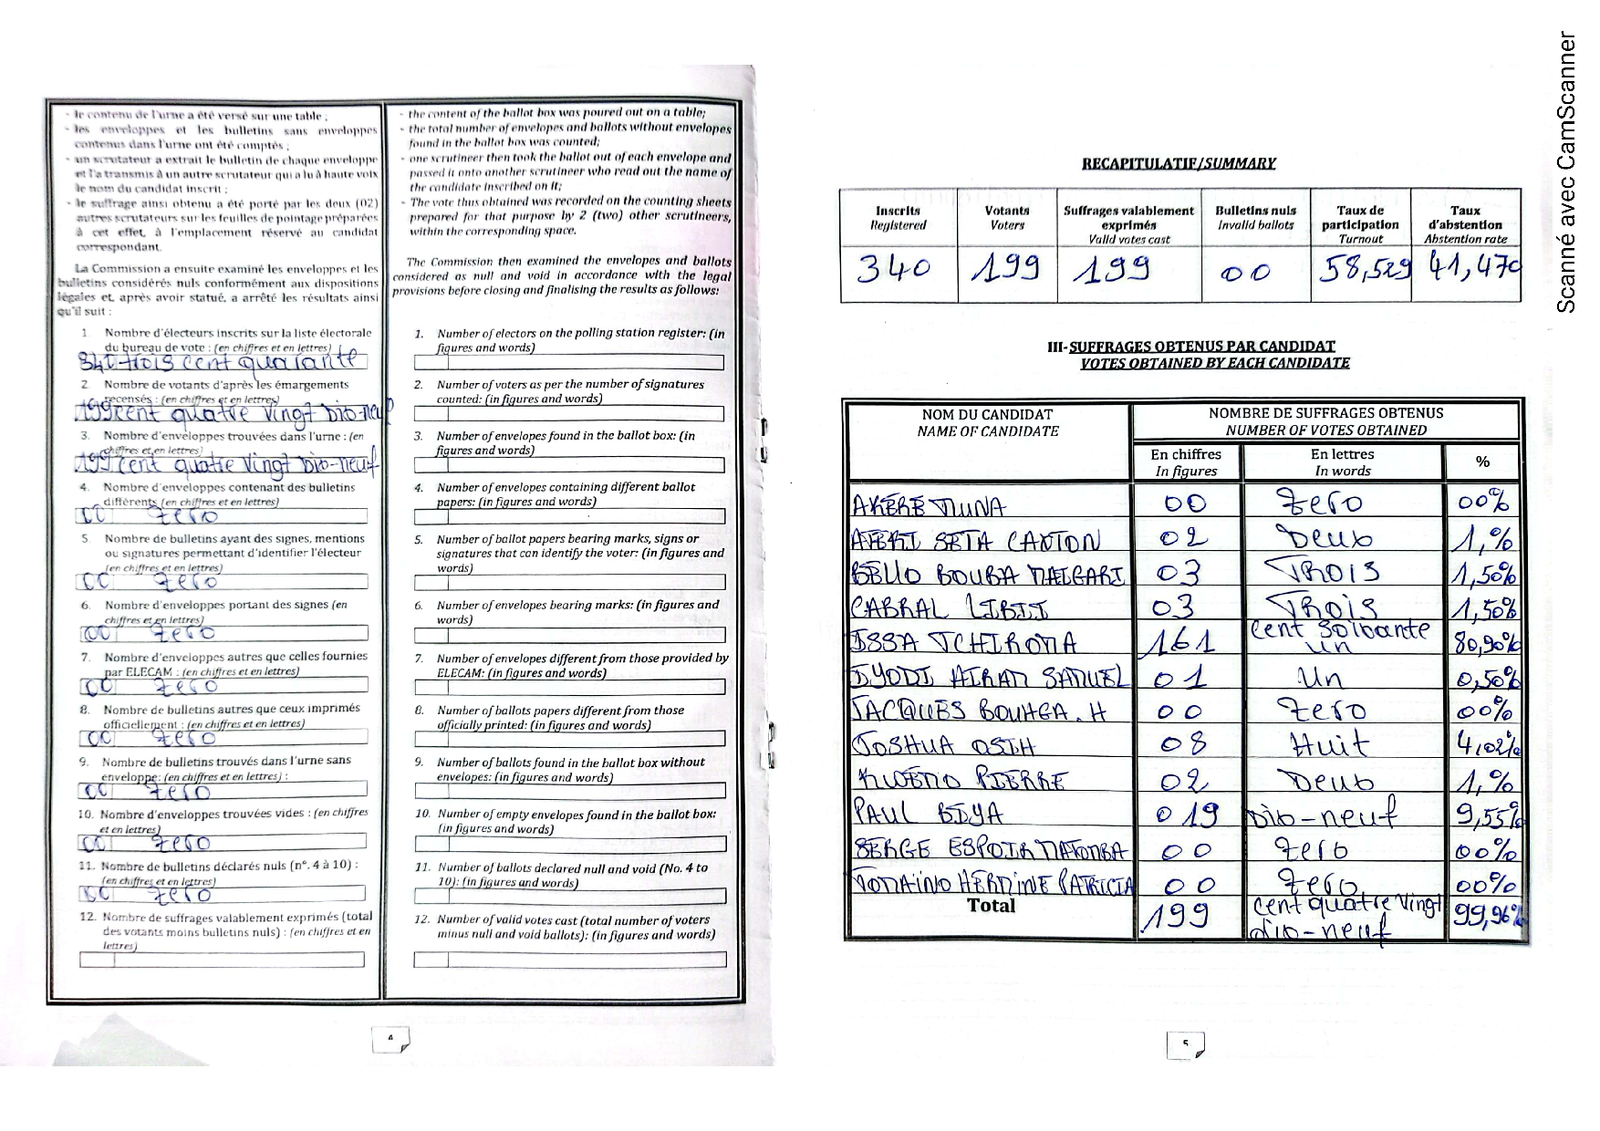 - le contenu de l'urne a été versé sur une table ;
- les enveloppes et les bulletins sans enveloppes
contenus dans l'urne ont été comptés ;
- un scrutateur a extrait le bulletin de chaque enveloppe
et l'a transmis à un autre scrutateur qui a lu à haute voix
le nom du candidat inscrit ;
- le suffrage ainsi obtenu a été porté par les deux (02)
autres scrutateurs sur les feuilles de pointage préparées
à cet effet, à l'emplacement réservé au candidat
correspondant.
La Commission a ensuite examiné les enveloppes et les
bulletins considérés nuls conformément aux dispositions
légales et, après avoir statué, a arrêté les résultats ainsi
qu'il suit :
1 Nombre d'électeurs inscrits sur la liste électorale
du bureau de vote : (en chiffres et en lettres)
340 trois cent quarante
2 Nombre de votants d'après les émargements
recensés : (en chiffres et en lettres)
199 cent quatre vingt Dix-neuf
3. Nombre d'enveloppes trouvées dans l'urne : (en
chiffres et en lettres)
199 cent quatre vingt Dix-neuf
4. Nombre d'enveloppes contenant des bulletins
différents (en chiffres et en lettres)
00 zero
5. Nombre de bulletins ayant des signes, mentions
ou signatures permettant d'identifier l'électeur
(en chiffres et en lettres)
00 zero
6. Nombre d'enveloppes portant des signes (en
chiffres et en lettres)
00 zero
7. Nombre d'enveloppes autres que celles fournies
par ELECAM : (en chiffres et en lettres)
00 zero
8. Nombre de bulletins autres que ceux imprimés
officiellement : (en chiffres et en lettres)
00 zero
9. Nombre de bulletins trouvés dans l'urne sans
enveloppe: (en chiffres et en lettres) :
00 zero
10. Nombre d'enveloppes trouvées vides : (en chiffres
et en lettres)
00 zero
11. Nombre de bulletins déclarés nuls (n°. 4 à 10) :
(en chiffres et en lettres)
00 zero
12. Nombre de suffrages valablement exprimés (total
des votants moins bulletins nuls) : (en chiffres et en
lettres)
- the content of the ballot box was poured out on a table;
- the total number of envelopes and ballots without envelopes
found in the ballot box was counted;
- one scrutineer then took the ballot out of each envelope and
passed it onto another scrutineer who read out the name of
the candidate inscribed on it;
- The vote thus obtained was recorded on the counting sheets
prepared for that purpose by 2 (two) other scrutineers,
within the corresponding space.
The Commission then examined the envelopes and ballots
considered as null and void in accordance with the legal
provisions before closing and finalising the results as follows:
1. Number of electors on the polling station register: (in
figures and words)
2. Number of voters as per the number of signatures
counted: (in figures and words)
3. Number of envelopes found in the ballot box: (in
figures and words)
4. Number of envelopes containing different ballot
papers: (in figures and words)
5. Number of ballot papers bearing marks, signs or
signatures that can identify the voter: (in figures and
words)
6. Number of envelopes bearing marks: (in figures and
words)
7. Number of envelopes different from those provided by
ELECAM: (in figures and words)
8. Number of ballots papers different from those
officially printed: (in figures and words)
9. Number of ballots found in the ballot box without
envelopes: (in figures and words)
10. Number of empty envelopes found in the ballot box:
(in figures and words)
11. Number of ballots declared null and void (No. 4 to
10): (in figures and words)
12. Number of valid votes cast (total number of voters
minus null and void ballots): (in figures and words)
4
RECAPITULATIF/SUMMARY
Inscrits Registered Votants Voters Suffrages valablement exprimés Valid votes cast Bulletins nuls Invalid ballots Taux de participation Turnout Taux d'abstention Abstention rate
340 199 199 00 58,529 41,470
III- SUFFRAGES OBTENUS PAR CANDIDAT
VOTES OBTAINED BY EACH CANDIDATE
NOM DU CANDIDAT NOMBRE DE SUFFRAGES OBTENUS
NAME OF CANDIDATE NUMBER OF VOTES OBTAINED
En chiffres En lettres %
In figures In words
AKERE MUNA 00 zero 00%
AFERI SETA CAXTON 02 Deux 1,%
BELLO BOUBA MAIGARI 03 TROIS 1,50%
CABRAL LIBII 03 TROIS 1,50%
ISSA TCHIROMA 161 cent soixante un 80,90%
IYODI HIRAM SAMUEL 01 Un 0,50%
JACQUES BOUHGA.H 00 zero 00%
JOSHUA OSIH 08 Huit 4,02%
KWEMO PIERRE 02 Deux 1,%
PAUL BIYA 019 Dix-neuf 9,55%
SERGE ESPOIR MATOMBA 00 zero 00%
TOMAINO HERMINE PATRICIA 00 zero 00%
Total 199 cent quatre vingt dix-neuf 99,96%
5
Scanné avec CamScanner